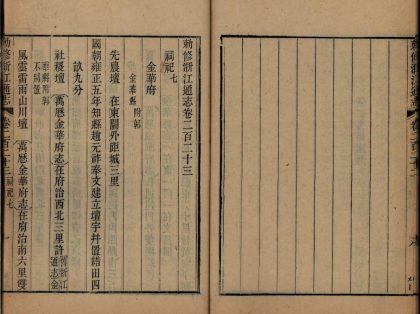 勅修浙江通志卷二百二十三
祠祀七
金華府
金華縣附郭
先農壇　在東關外距城三里
國朝雍正五年知縣趙元祚奉文建立壇宇并置耤田四
畝九分
社稷壇　萬厯金華府志在府治西北三里許　舊浙江通志金
華縣附郭不另置
風雲雷雨山川壇　萬厯金華府志在府治南六里雙
勅修浙江通志　卷二百二十三　祠祀七　一